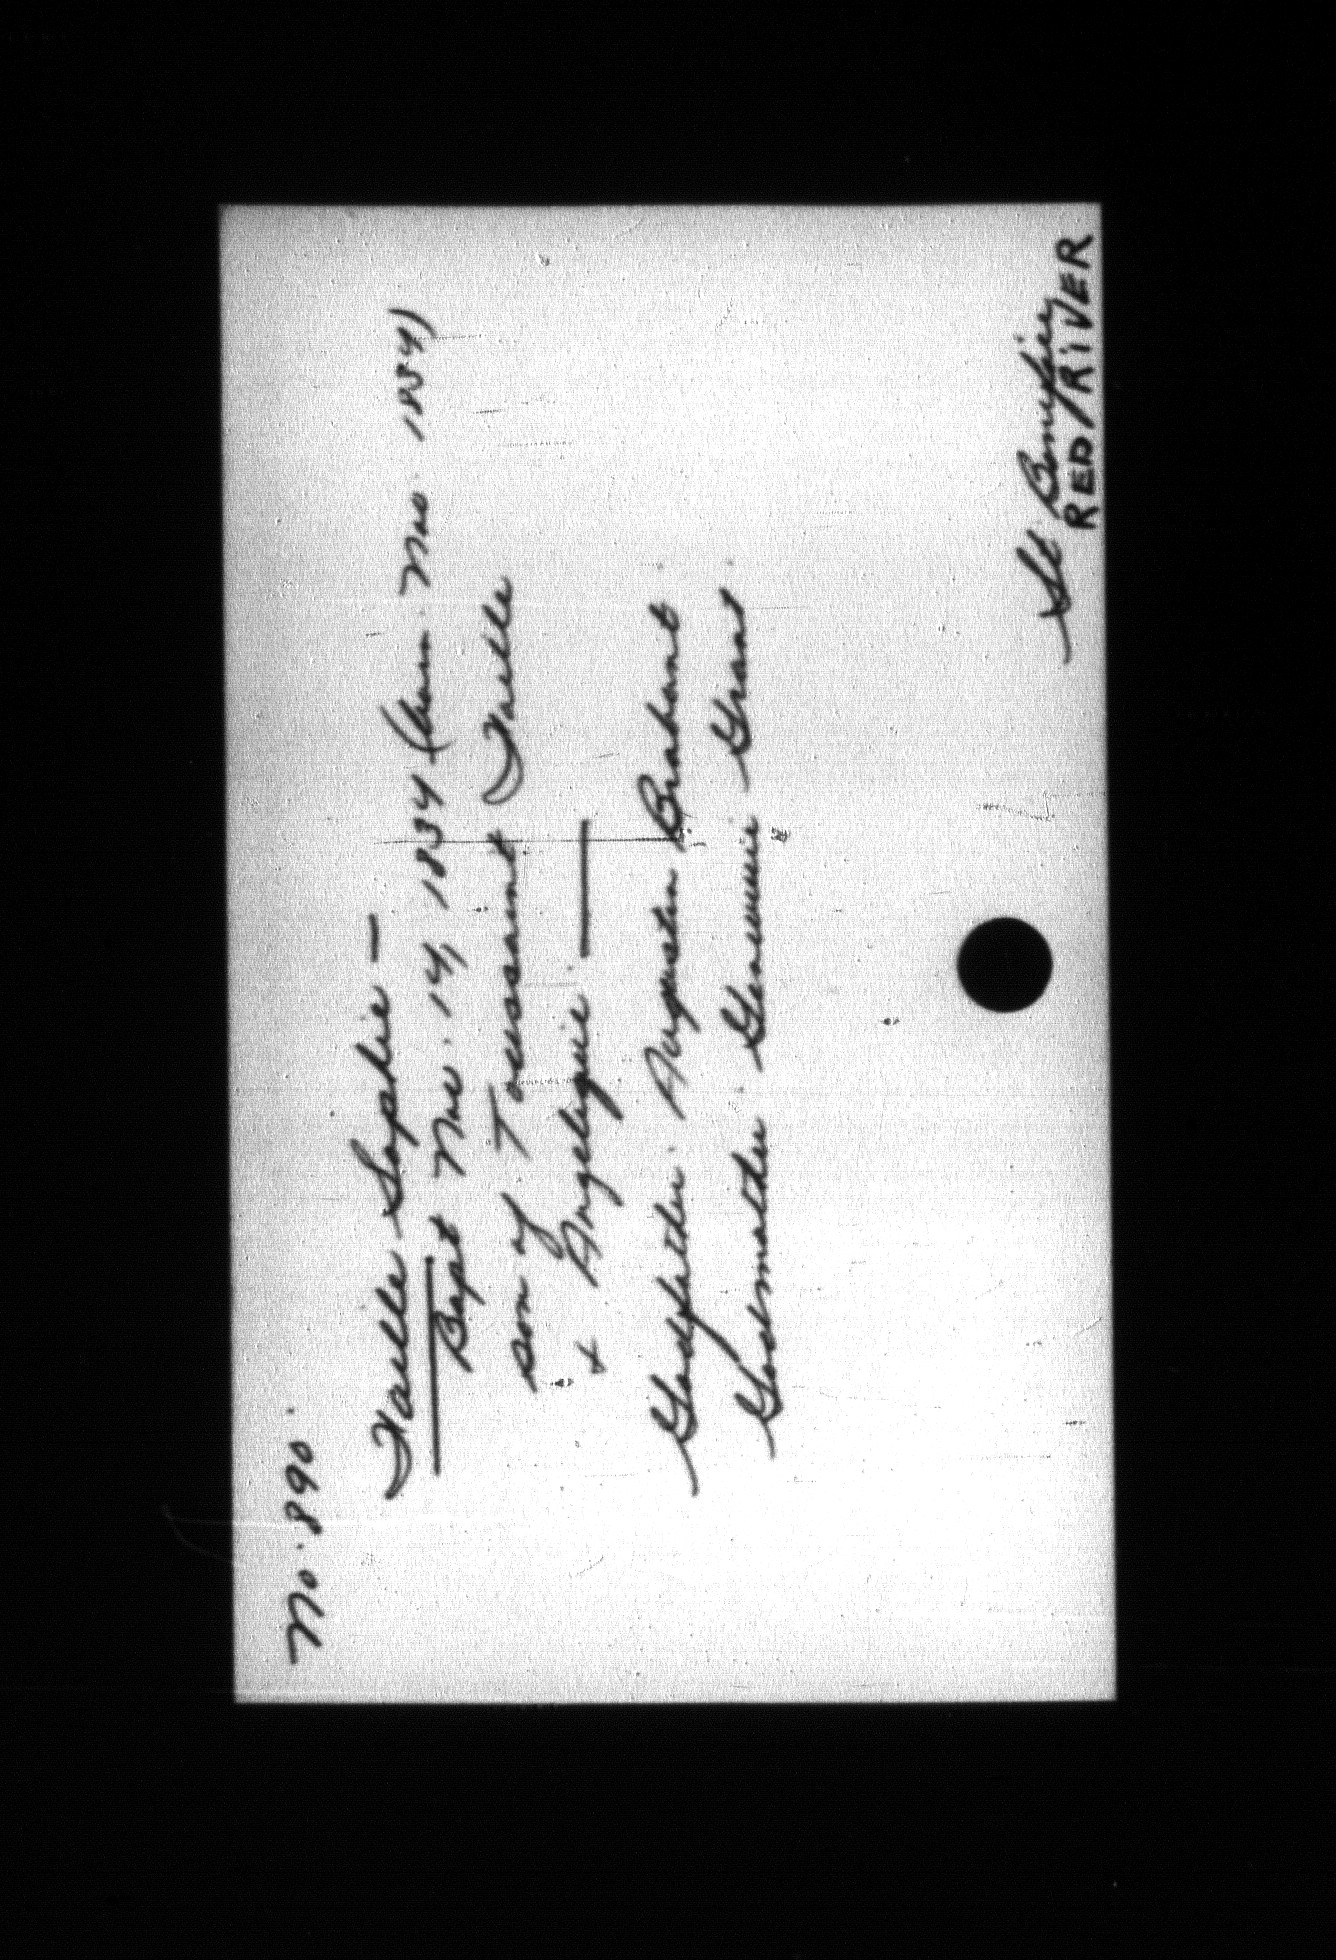 No. 890.
Vaille Sophie —
Bapt Nov. 14, 1834 (born Nov. 1834)
son of Toussaint Vaille
+ Angelique. —
Godfather. Augustin Brabant.
Godmother. Genevieve Grant.
St. Boniface
RED/RIVER